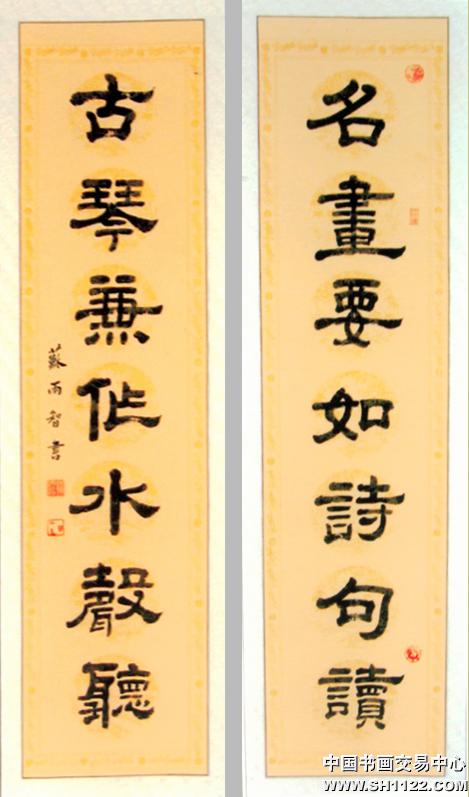 名畫要如詩句讀
古琴兼作水聲聽
蘇雨智書
中国书画交易中心
www.SH1122.com